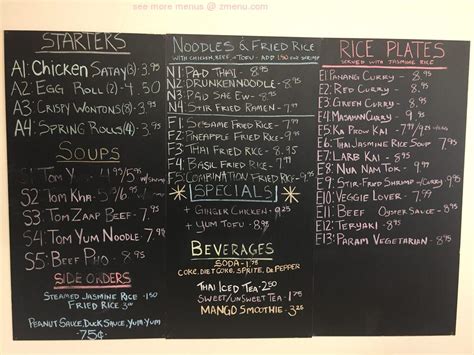 see more menus @ zmenu.com
STARTERS
A1: Chicken Satay (3) - 3.95
A2: Egg Roll (2) - 4.50
A3: Crispy Wontons (8) - 3.95
A4: Spring Rolls (4) - 3.95
SOUPS
S1: Tom Yum
S2: Tom Kha
S3: Tom Zaap Beef - 7.95
S4: Tom Yum Noodle - 7.95
S5: Beef Pho
SIDE ORDERS
STEAMED JASMINE RICE - 1.50
FRIED RICE
PEANUT SAUCE, DUCK SAUCE, YUM-YUM
75¢
NOODLES & FRIED RICE
WITH CHICKEN, BEEF, OR TOFU - ADD 1.50 FOR SHRIMP
N1: PAD THAI - 8.95
N2: DRUNKEN NOODLE - 8.95
N3: PAD SAE EW - 8.95
N4: STIR FRIED RAMEN
F1: SESAME FRIED RICE
F2: PINEAPPLE FRIED RICE
F3: THAI FRIED RICE
F4: BASIL FRIED RICE
F5: COMBINATION FRIED RICE
SPECIALS
+ GINGER CHICKEN - 9.25
+ YUM TOFU
BEVERAGES
SODA - 1.75
COKE, DIET COKE, SPRITE, DR. PEPPER
THAI ICED TEA - 2.50
SWEET/UNSWEET TEA
MANGO SMOOTHIE - 3.25
RICE PLATES
SERVED WITH JASMINE RICE
E1: PANANG CURRY - 8.95
E2: RED CURRY - 8.95
E3: GREEN CURRY - 8.95
E4: MASAMAN CURRY
E5: KA PROW KAI
E6: THAI JASMINE RICE SOUP
E7: LARB KAI
E8: NUA NAM TOK
E9: STIR-FRIED SHRIMP w/ CURRY
E10: VEGGIE LOVER
E11: BEEF OYSTER SAUCE
E12: TERIYAKI
E13: PARAM VEGETARIAN